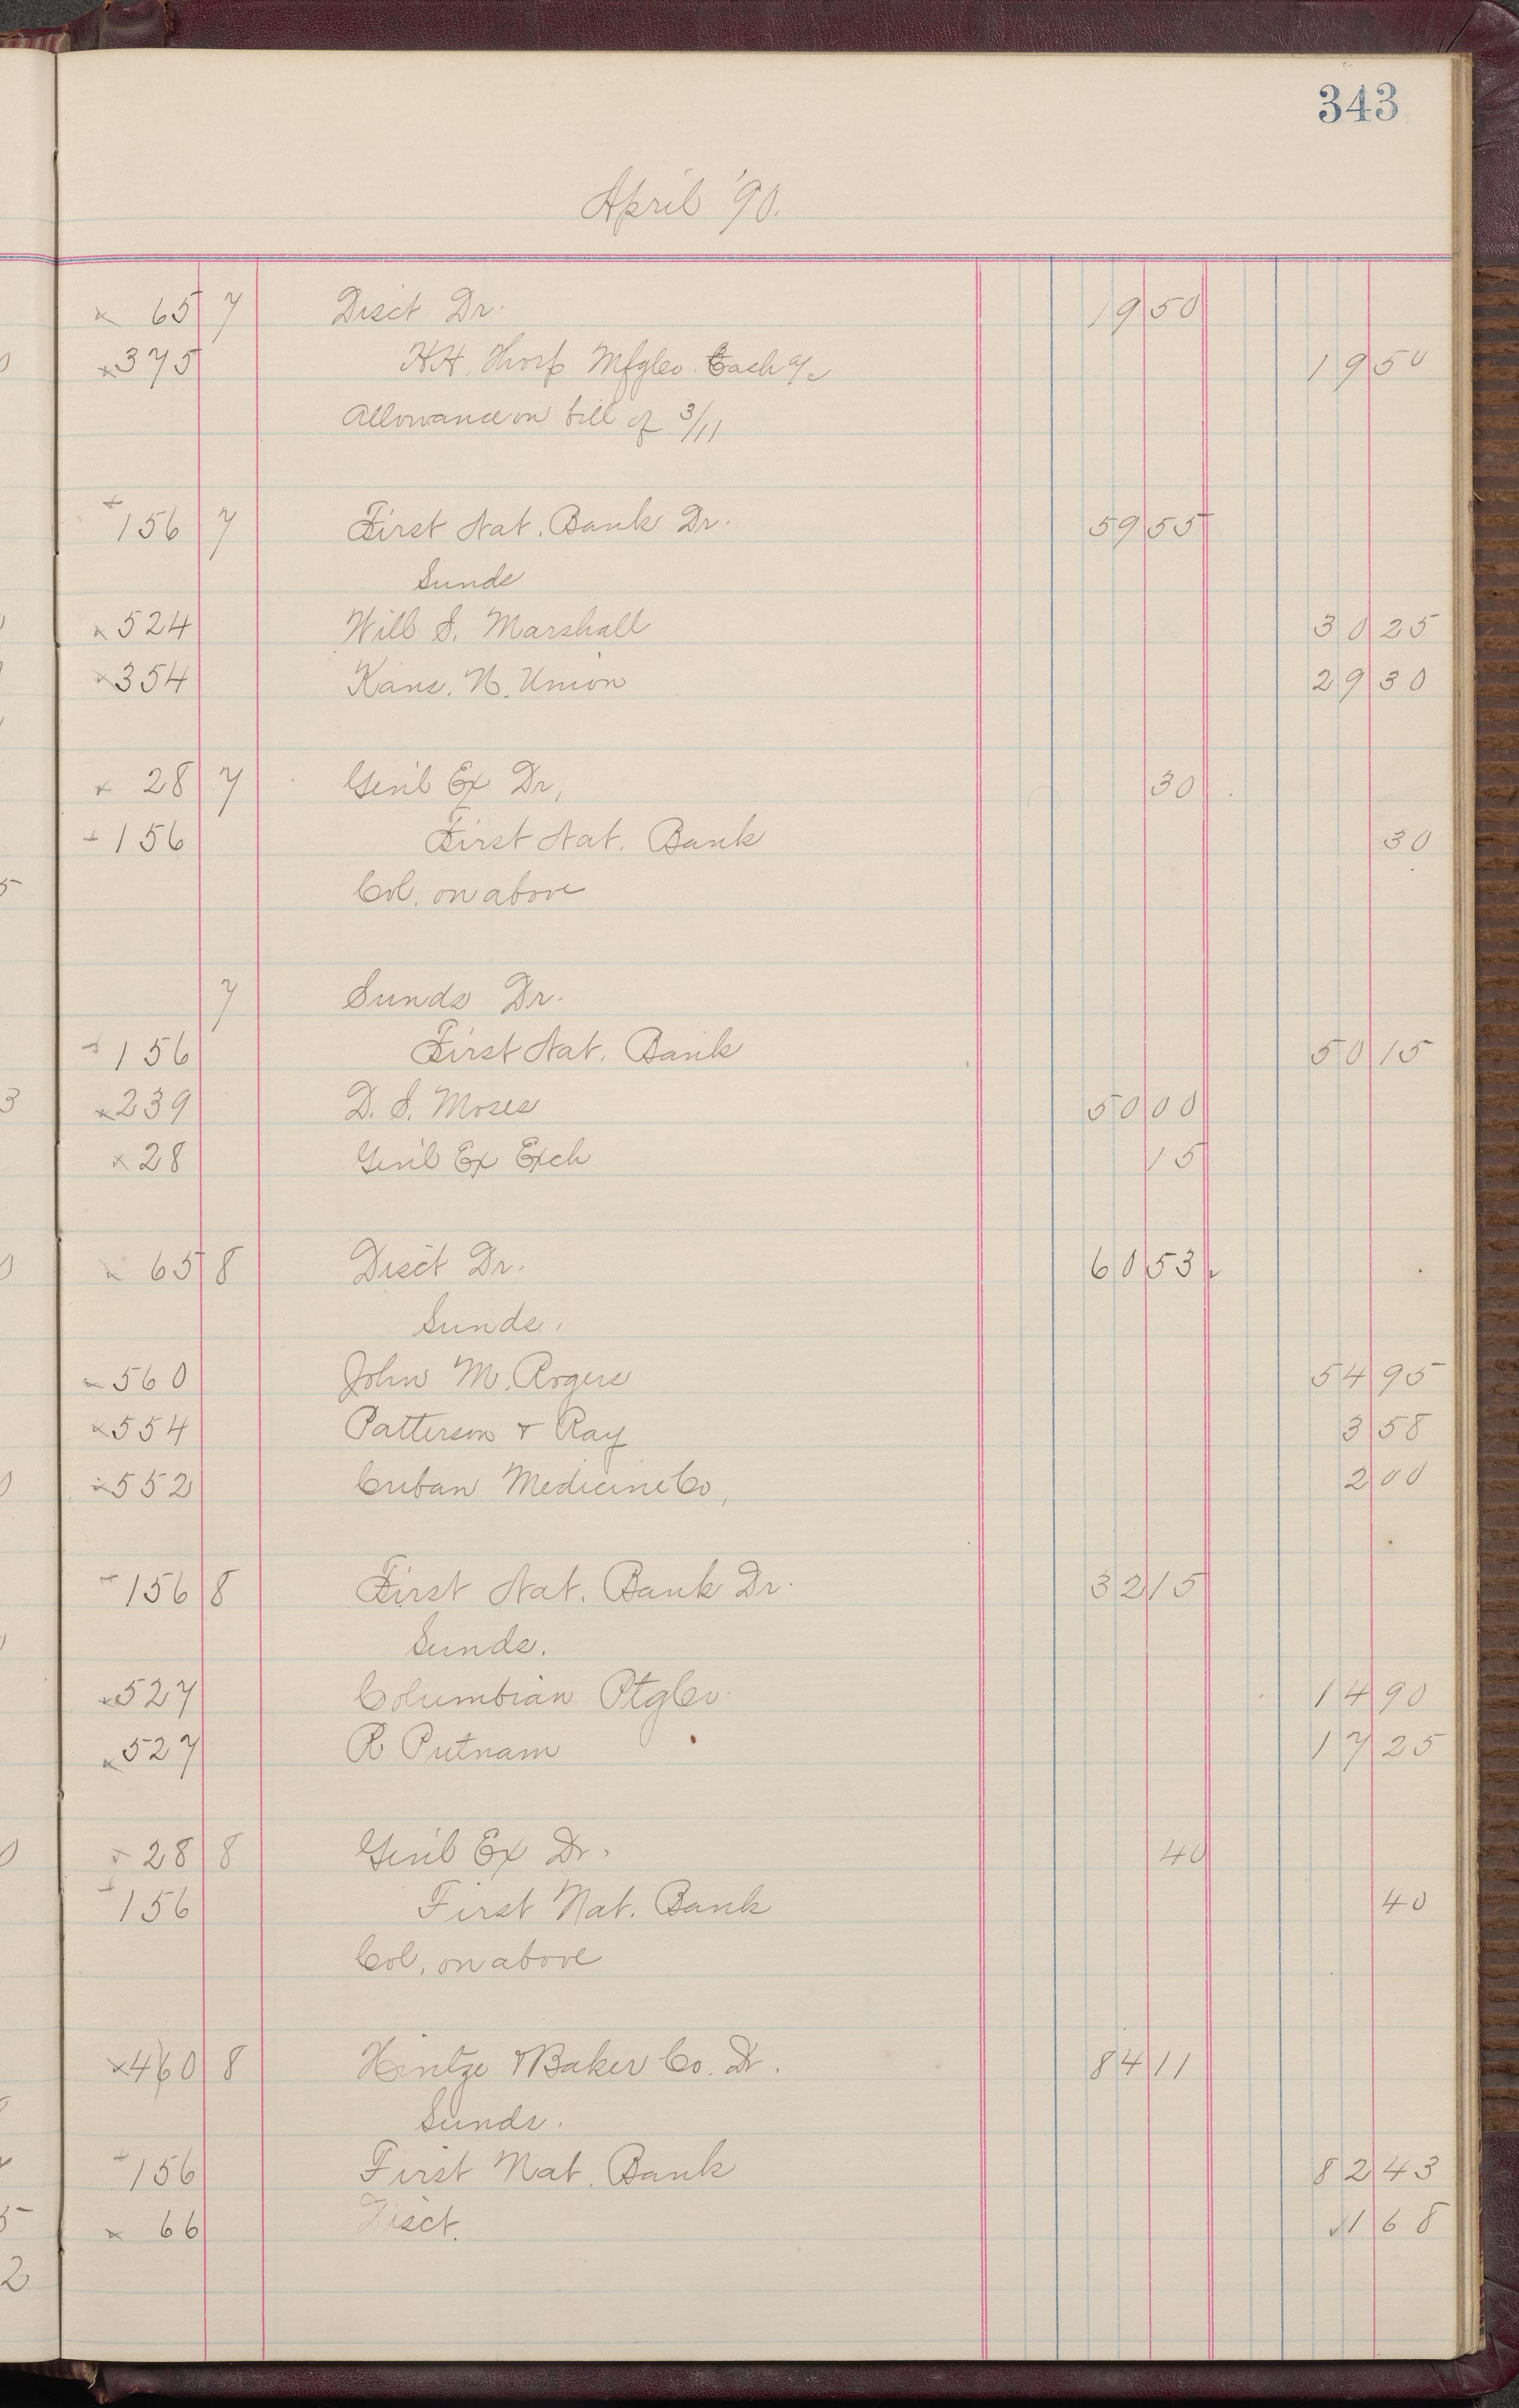 343
April '90.
x 65 7 Disct Dr. 19 50
x 375 H.H. Thorp Mfg Co. Cash a/c 19 50
Allowance on bill of 3/11
x 156 7 First Nat. Bank Dr. 59 55
Sunds
x 524 Will S. Marshall 30 25
x 354 Kans. N. Union 29 30
x 28 7 Gen'l Ex Dr, 30
x 156 First Nat. Bank 30
Col. on above
7 Sunds Dr.
x 156 First Nat. Bank 50 15
x 239 D. S. Moses 50 00
x 28 Gen'l Ex Exch 15
x 65 8 Disct Dr. 60 53
Sunds.
x 560 John M. Rogers 54 95
x 554 Patterson & Ray 3 58
x 552 Cuban Medicine Co, 2 00
x 156 8 First Nat. Bank Dr. 32 15
Sunds.
x 527 Columbian Ptg Co. 14 90
x 527 R Putnam 17 25
x 28 8 Gen'l Ex Dr. 40
x 156 First Nat. Bank 40
Col, on above
x 460 8 Hintze & Baker Co. Dr. 84 11
Sunds.
x 156 First Nat. Bank 82 43
x 66 Disct. 1 68